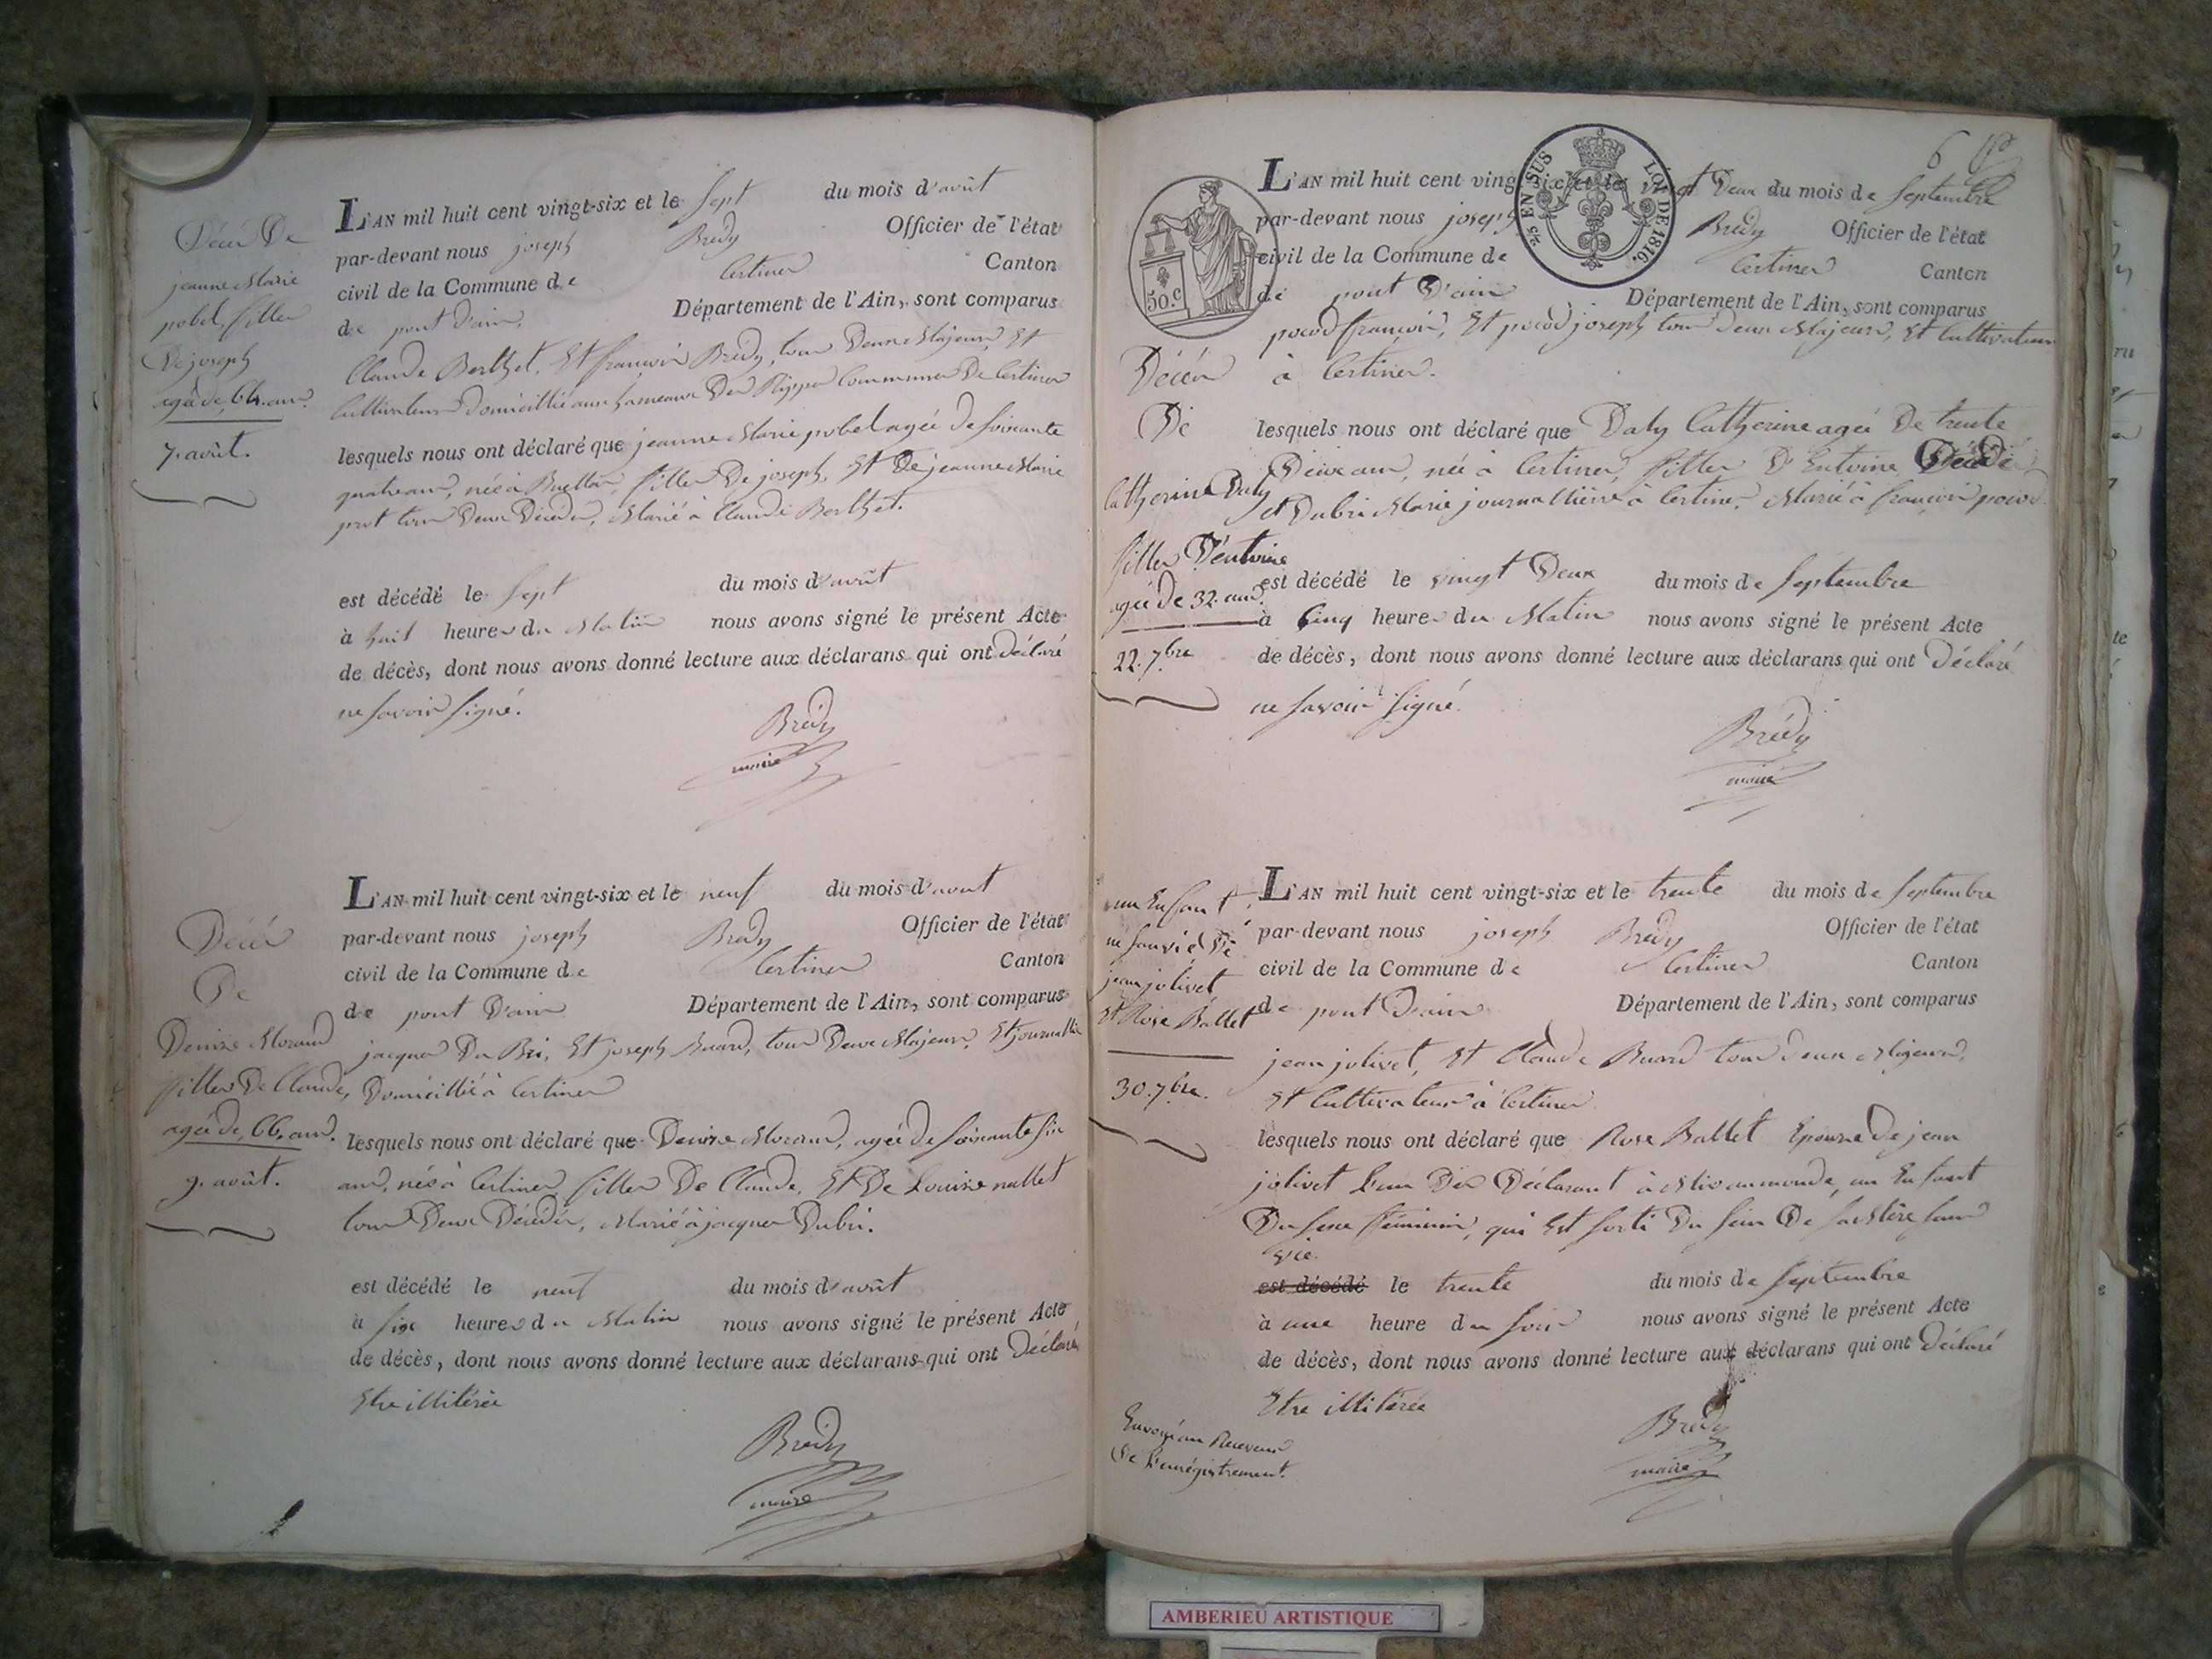 Décès De
jeanne Marie
pobel, filles
De joseph
agée de 64. ans.
7. août.
L'AN mil huit cent vingt-six et le Sept du mois d'août
par-devant nous joseph Brédy Officier de l'état
civil de la Commune de Certines Canton
de pont d'ain, Département de l'Ain, sont comparus
Claude Berthet, Et françois Brédy, tous Deux Majeurs, Et
Cultivateurs Domicilliés aux hameaux Des Rippes Communes De Certines
lesquels nous ont déclaré que jeanne Marie pobel agée de soixante
quatre ans, née à Buellas, filles De joseph, Et De jeanne Marie
prot tous Deux Décédés, Marié à Claude Berthet.
est décédé le Sept du mois d'août
à huit heures du Matin nous avons signé le présent Acte
de décès, dont nous avons donné lecture aux déclarans qui ont déclaré
ne savoir signé.
Brédy
maire
Décès
De
Denise Morand
filles De Claude,
agée de 66. ans.
9. août.
L'AN mil huit cent vingt-six et le neuf du mois d'aout
par-devant nous joseph Brédy Officier de l'état
civil de la Commune de Certines Canton
de pont D'ain Département de l'Ain, sont comparus
jacques Du Bri, Et joseph Buard, tous Deux Majeurs, Et journallié
Domicillié à Certines
lesquels nous ont déclaré que Denise Morand, agée de soixante six
ans, née à Certines filles De Claude, Et De Louise mallet
tous Deux Décédés, Marié à jacques Dubri.
est décédé le neuf du mois d'août
à six heures du Matin nous avons signé le présent Acte
de décès, dont nous avons donné lecture aux déclarans qui ont Déclaré
Etre illitérée
Brédy
maire
6
50.c
2/5 EN SUS LOI DE 1816.
L'AN mil huit cent vingt-six et le vingt Deux du mois de Septembre
par-devant nous joseph Brédy Officier de l'état
civil de la Commune de Certines Canton
de pont D'ain Département de l'Ain, sont comparus
pocod françois, Et pocod joseph tous Deux Majeurs, Et Cultivateurs
à Certines.
Décès
De
Catherine Daty
filles D'entoine
agée de 32. ans.
22. 7bre
lesquels nous ont déclaré que Daty Catherine agée De trente
Deux ans, née à Certines, filles D'Entoine Décédé
et Dubri Marie journallière à Certines. Marié à françois pocod
est décédé le vingt Deux du mois de Septembre
à Cinq heures du Matin nous avons signé le présent Acte
de décès, dont nous avons donné lecture aux déclarans qui ont Déclaré
ne savoir signé.
Brédy
maire
un Enfant
ne sans vie De
jean jolivet
Et Rose Ballet
30. 7bre.
L'AN mil huit cent vingt-six et le trente du mois de Septembre
par-devant nous joseph Brédy Officier de l'état
civil de la Commune de Certines Canton
de pont D'ain Département de l'Ain, sont comparus
jean jolivet, Et Claude Buard tous Deux Majeurs,
Et Cultivateurs à Certines
lesquels nous ont déclaré que Rose Ballet Epouse De jean
jolivet L'un Des Déclarant à Mis au monde, un Enfant
Du sexe féminin, qui Est sorti Du sein De sa Mère sans
vie.
est décédé le trente du mois de Septembre
à une heure du soir nous avons signé le présent Acte
de décès, dont nous avons donné lecture aux déclarans qui ont Déclaré
Etre illitérée
Brédy
maire
Envoyé au Receveur
De l'enrégistrement.
AMBERIEU ARTISTIQUE